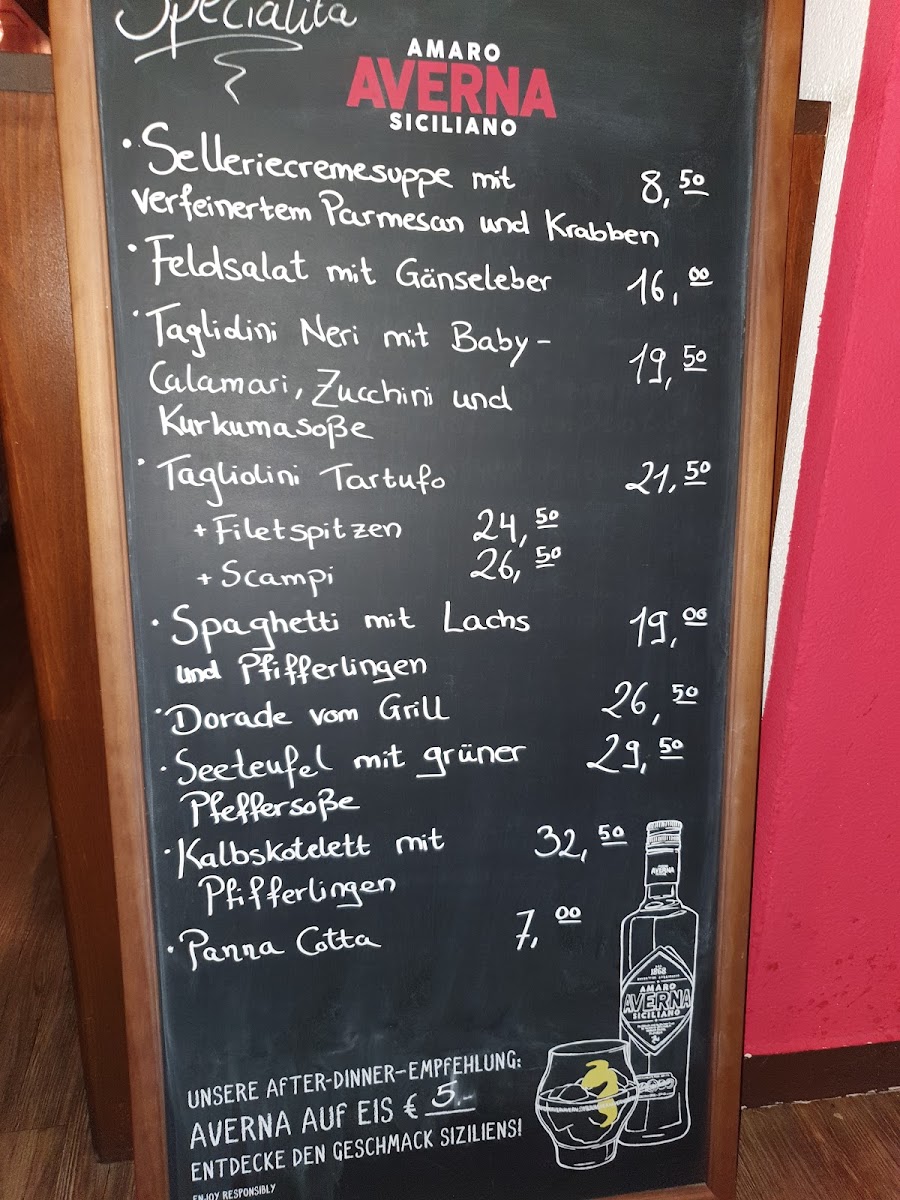 Specialita
AMARO
AVERNA
SICILIANO
· Selleriecremesuppe mit 8,50
verfeinertem Parmesan und Krabben
· Feldsalat mit Gänseleber 16,00
· Tagliolini Neri mit Baby-
Calamari, Zucchini und 19,50
Kurkumasoße
· Tagliolini Tartufo 21,50
+ Filetspitzen 24,50
+ Scampi 26,50
· Spaghetti mit Lachs 19,00
und Pfifferlingen
· Dorade vom Grill 26,50
· Seeteufel mit grüner 29,50
Pfeffersoße
· Kalbskotelett mit 32,50
Pfifferlingen
· Panna Cotta 7,00
AVERNA
1868
AMARO
AVERNA
SICILIANO
UNSERE AFTER-DINNER-EMPFEHLUNG:
AVERNA AUF EIS € 5.-
ENTDECKE DEN GESCHMACK SIZILIENS!
ENJOY RESPONSIBLY